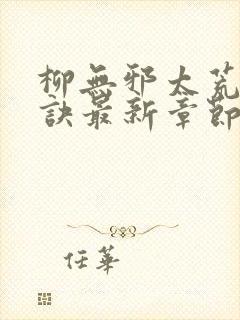 柳無邪太荒
訣最新章節
任華